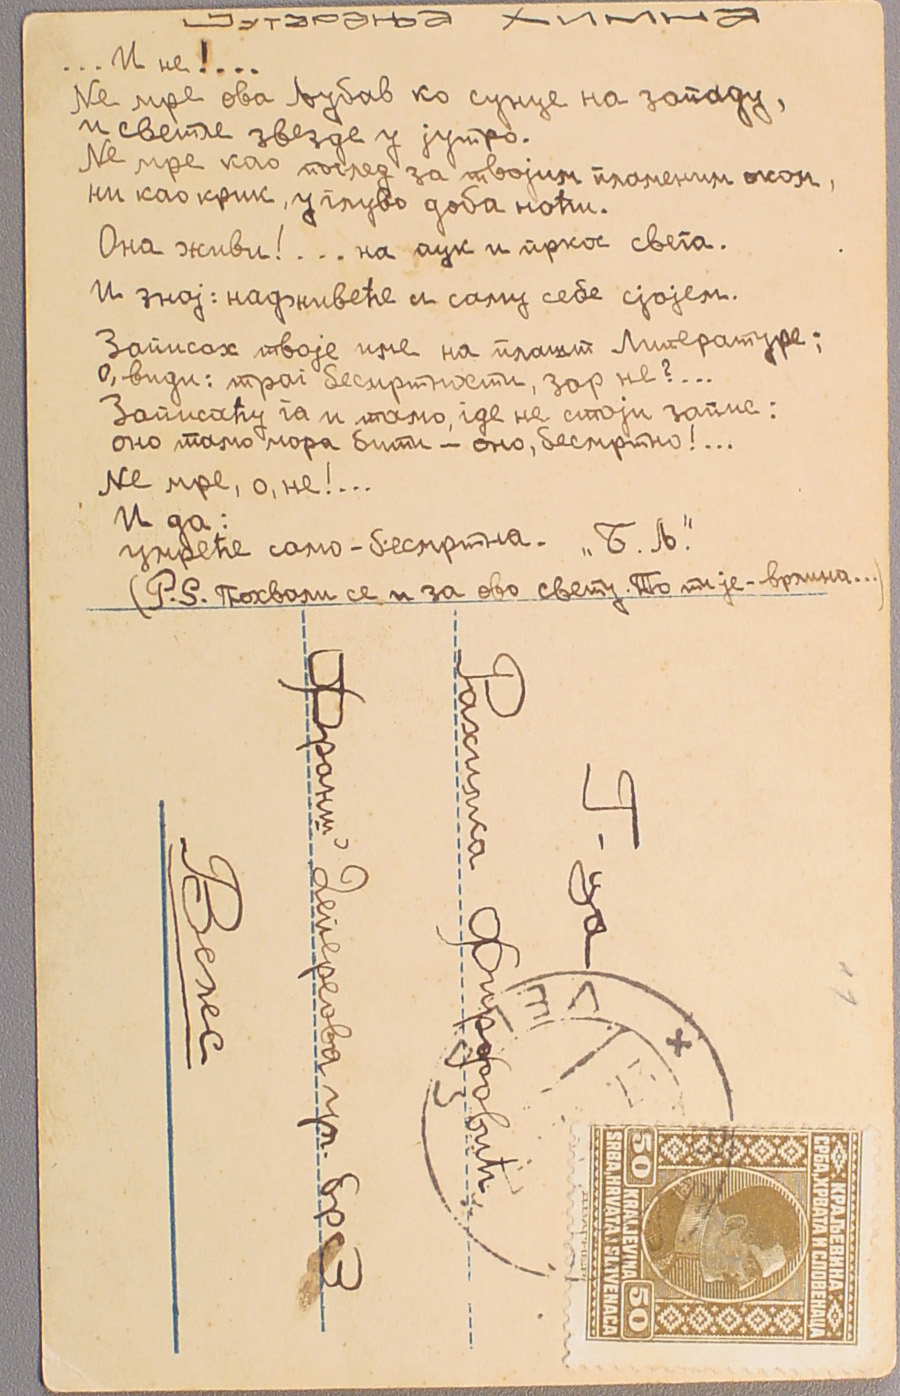 Јутарања химна
...И не!....
Не мре ова љубав ко сунце на западу,
и светле звезде у јутро.
Не мре као поглед за твојим пламеним оком,
ни као крик, у глуво доба ноћи.
Она живи!... на аук и пркос света.
И знај: надживеће и саму себе сјајем.
Записах твоје име на плашт Литературе;
о, види: траг бесмртности, зар не?...
Записаћу га и тамо, где не стоји запис:
оно тамо мора бити – оно, бесмртно!...
Не мре, о, не!...
И да:
умреће само – бесмртна. „Б. Љ."
(P.S. Похвали се и за ово свету. То ти је – врлина...)
Г-ђа
Рахилка Фирфовић
Франш Деперева ул. брс 3
Велес
КРАЉЕВИНА
СРБА, ХРВАТА И СЛОВЕНАЦА
50 KRALJEVINA 50
SRBA, HRVATA I SLOVENACA